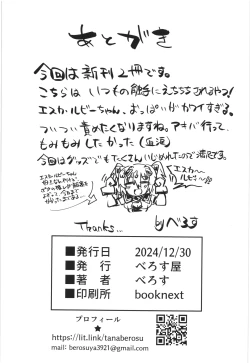 あとがき
今回は新刊2冊です。
こちらは いつもの触手にえちちちされるやつ!
エスカ・ルビーちゃん、おっぱいがカワイすぎる。
ついつい責めたくなりますね。アキバ行って、
もみもみしたかった(血涙)
今回はグッズでもたくさんいじめれたので満足です。
エスカ〜
ルビィ〜!!
Thanks...
by べろす
■発行日 2024/12/30
■発 行 べろす屋
■著 者 べろす
■印刷所 booknext
プロフィール
★
https://lit.link/tanaberosu
mail: berosuya3921@gmail.com